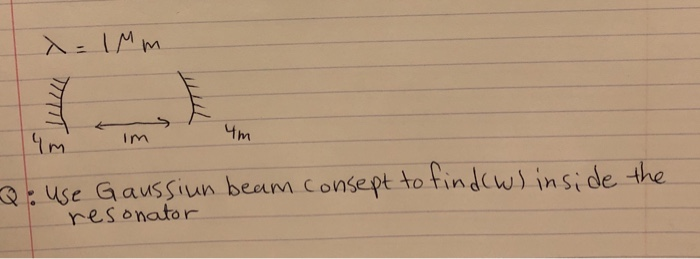 λ = 1 µm
4m 1m 4m
Q: Use Gaussiun beam consept to find(w) inside the
resonator